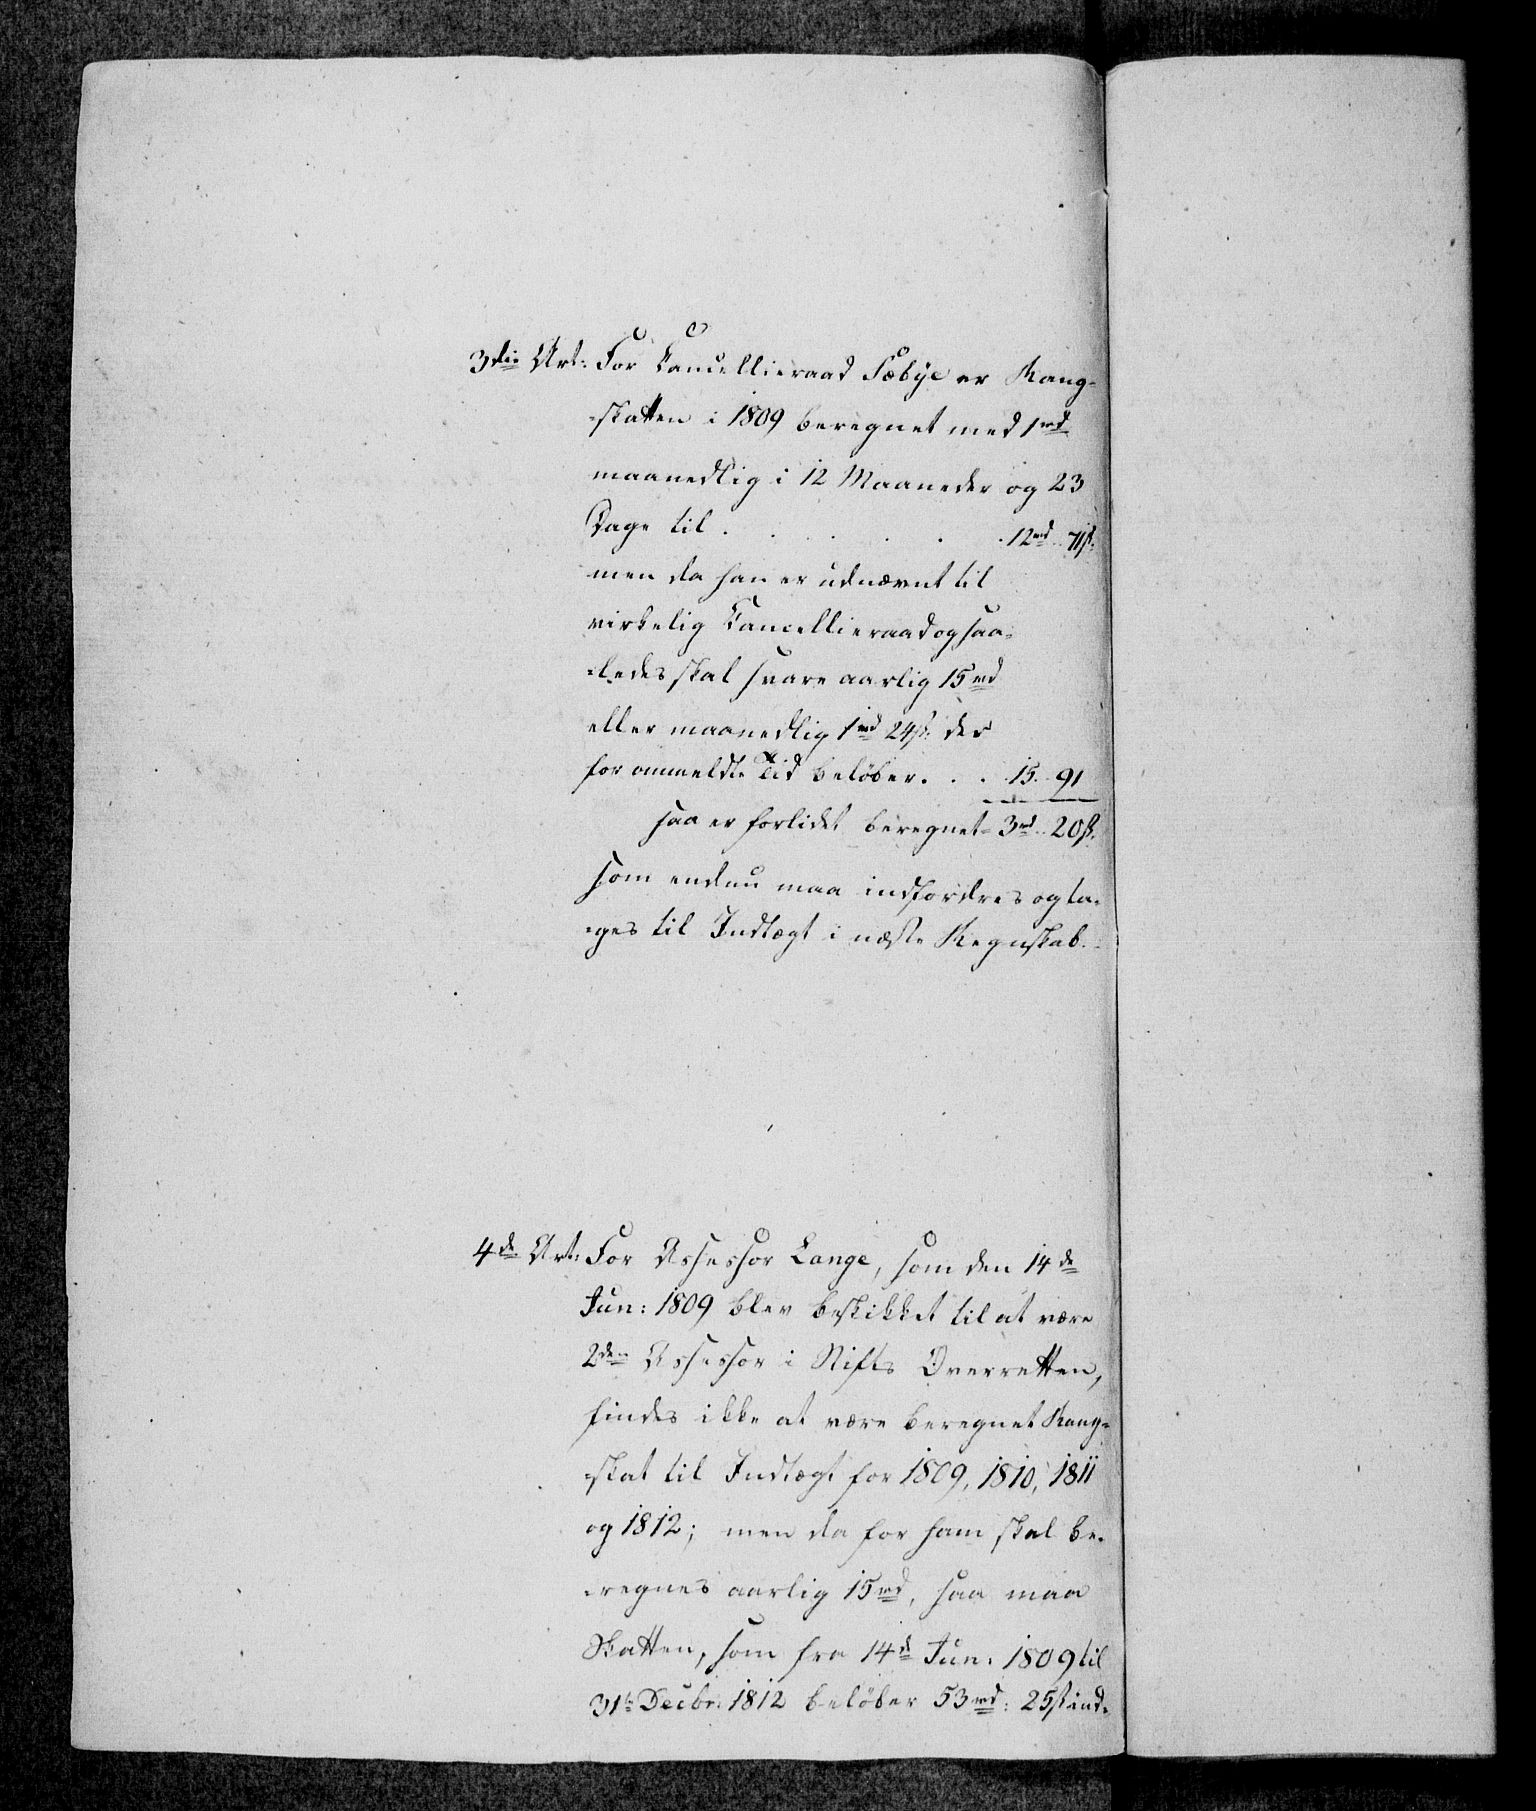 3die Art: For Cancellieraad Sæbÿe er Rang-
-skatten i 1809 beregnet med 1rd
maanedlig i 12 Maaneder og 23
Dage til . . . . . . 12rd. 71ß.
men da han er udnævnt til
virkelig Cancellieraad og saa-
-ledes skal svare aarlig 15rd
eller maanedlig 1rd 24ß. der
for anmeldte Tid beløber . . . 15. 91
saa er forlidet beregnet - 3rd. 20ß.
som endnu maa indfordres og ta-
-ges til Indtægt i næste Regnskab.
4de Art: For Assessor Lange, som den 14de
Jun: 1809 blev beskikket til at være
2den Assessor i Stifts Overretten,
findes ikke at være beregnet Rang-
-skat til Indtægt for 1809, 1810, 1811
og 1812; men da for ham skal be-
-regnes aarlig 15rd, saa maa
Skatten, som fra 14d Jun: 1809 til
31te Decbr: 1812 beløber 53rd: 25ß ind-